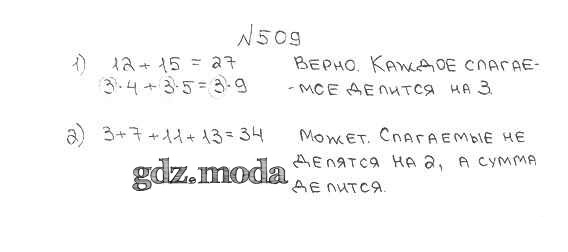 №509
1) 12 + 15 = 27 ВЕРНО. КАЖДОЕ СЛАГАЕ-
3·4 + 3·5 = 3·9 -МОЕ ДЕЛИТСЯ НА 3.
2) 3+7+11+13=34 МОЖЕТ. СЛАГАЕМЫЕ НЕ
ДЕЛЯТСЯ НА 2, А СУММА
gdz.moda
ДЕЛИТСЯ.